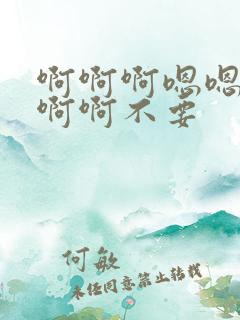 啊啊啊嗯嗯
啊啊不要
何敏
未经同意禁止转载